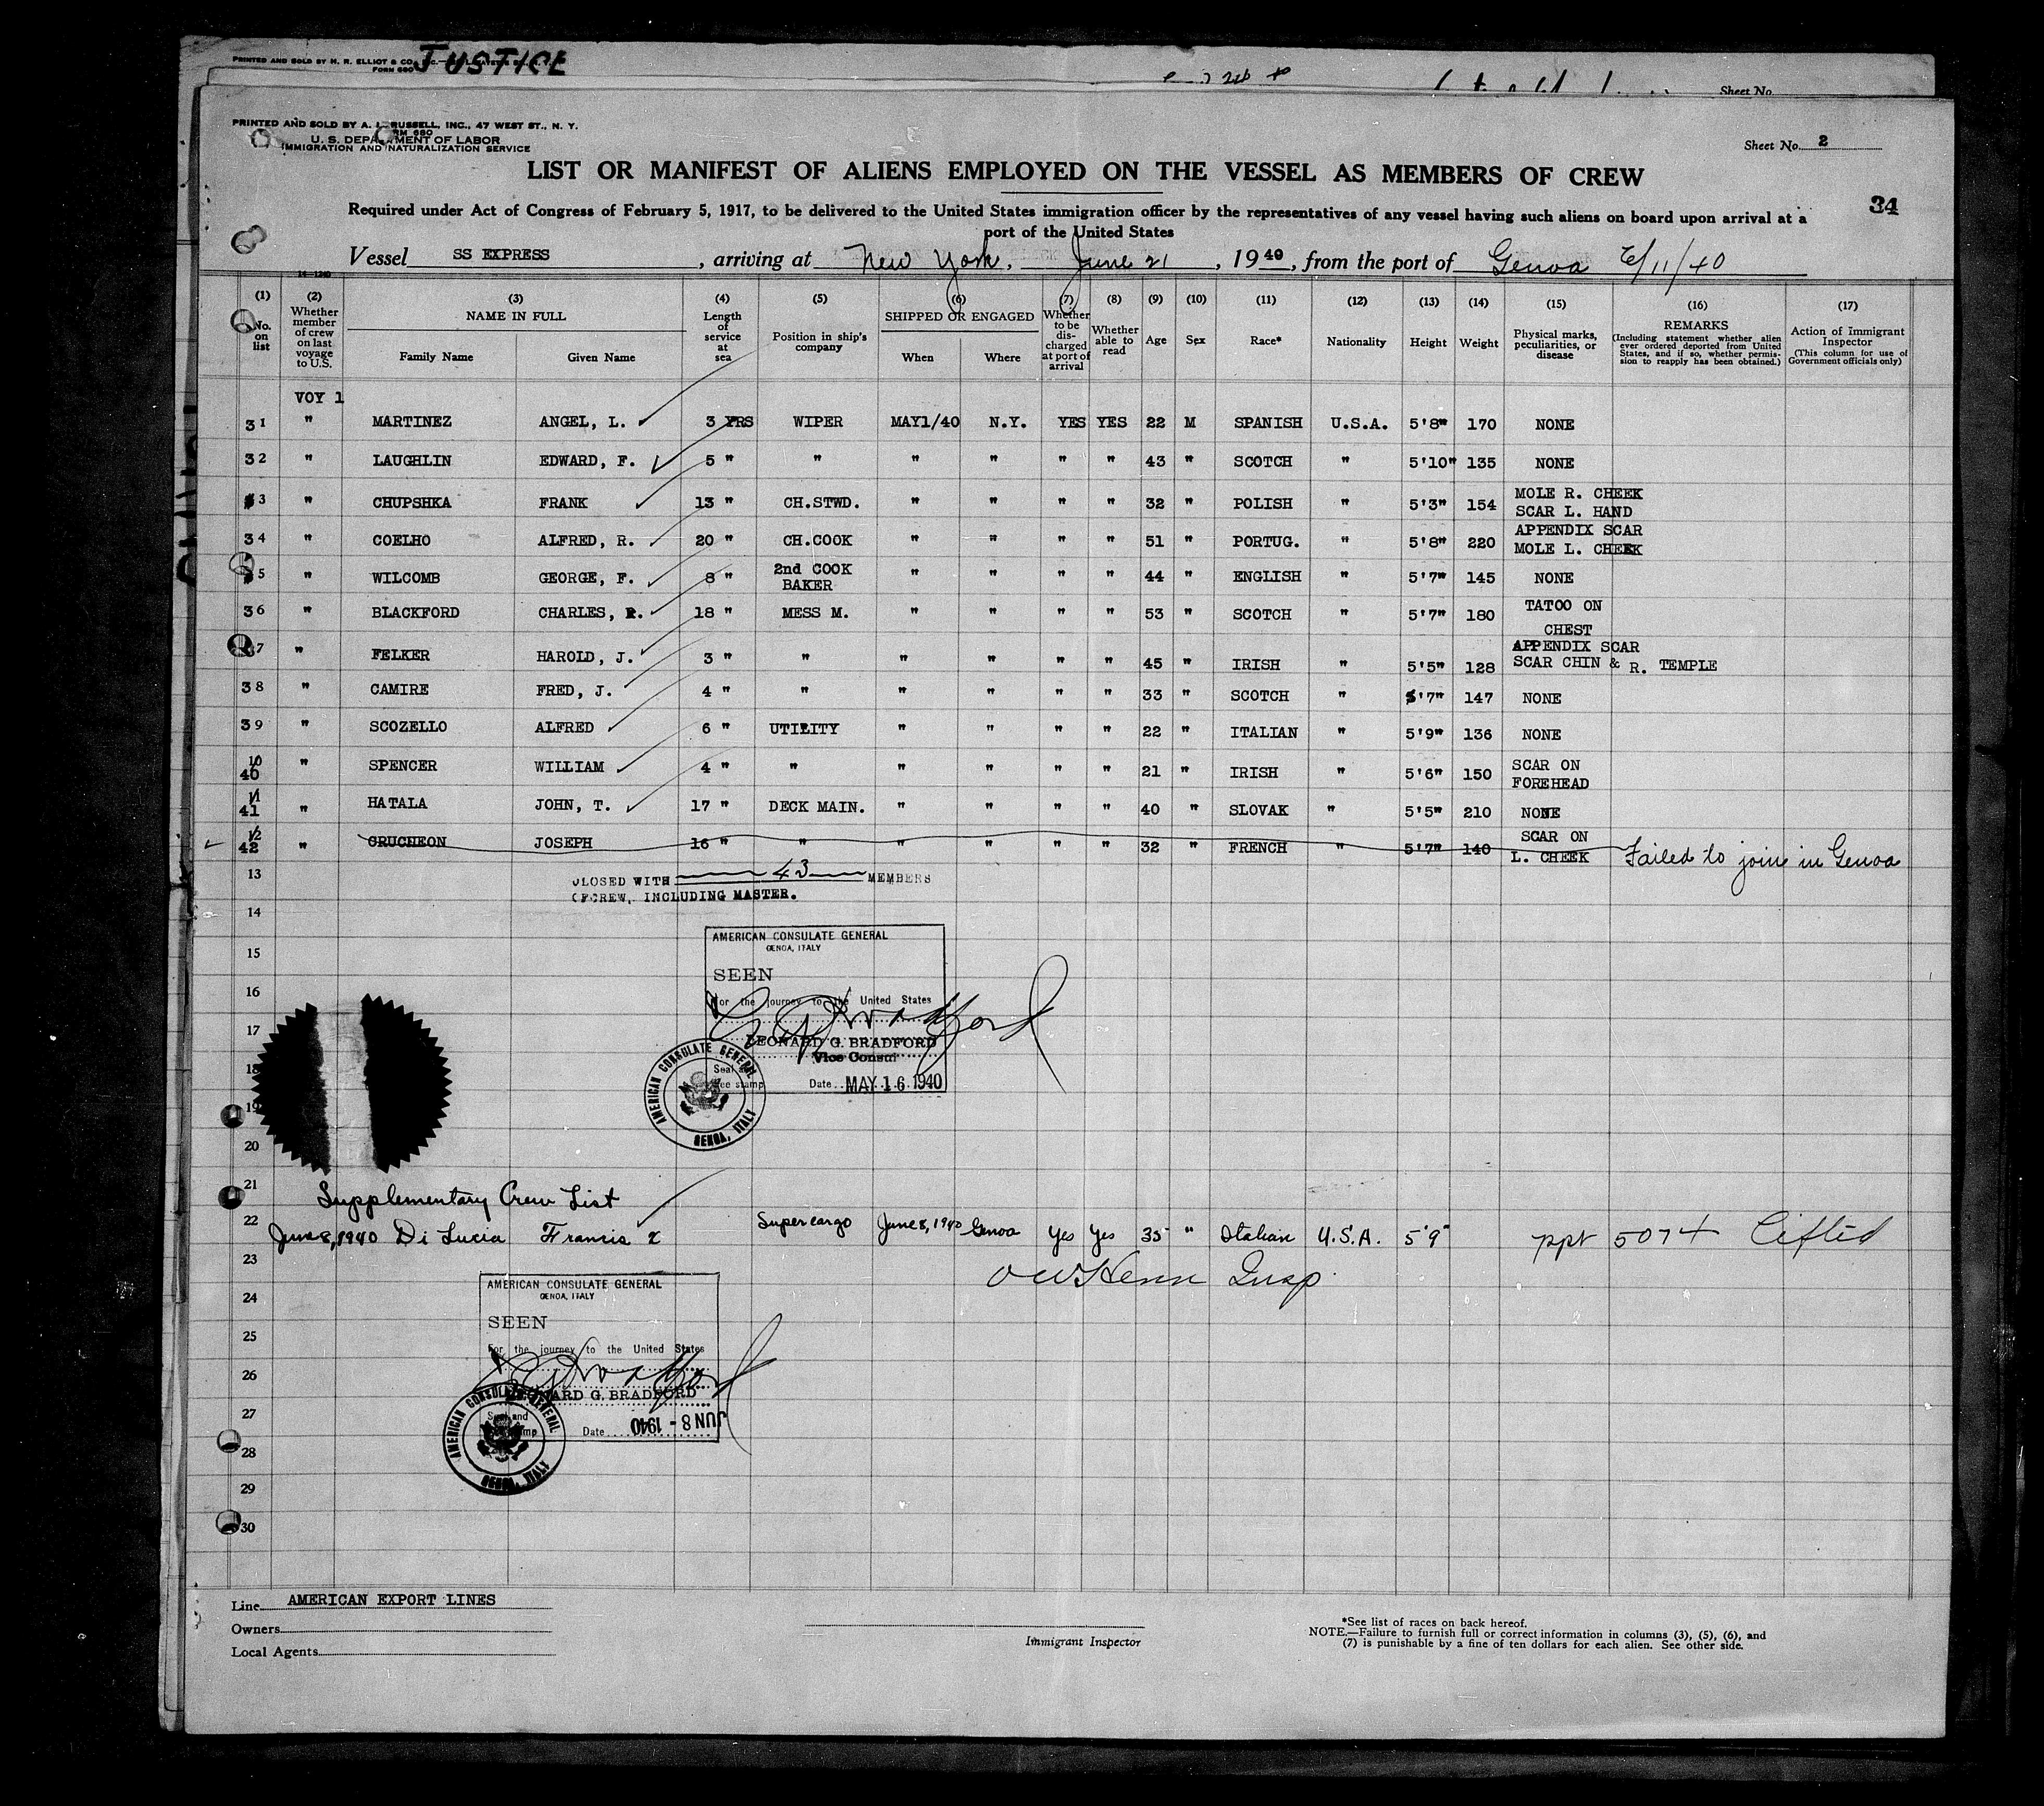 PRINTED AND SOLD BY H. R. ELLIOT & CO.
FORM 680
JUSTICE
Sheet No.
PRINTED AND SOLD BY A. L. RUSSELL, INC., 47 WEST ST., N. Y.
FORM 680
U. S. DEPARTMENT OF LABOR
IMMIGRATION AND NATURALIZATION SERVICE
Sheet No. 2
LIST OR MANIFEST OF ALIENS EMPLOYED ON THE VESSEL AS MEMBERS OF CREW
34
Required under Act of Congress of February 5, 1917, to be delivered to the United States immigration officer by the representatives of any vessel having such aliens on board upon arrival at a
port of the United States
Vessel SS EXPRESS, arriving at New York, June 21, 1940, from the port of Genoa 6/11/40
(1) No. on list
(2) Whether member of crew on last voyage to U.S.
(3) NAME IN FULL Family Name Given Name
(4) Length of service at sea
(5) Position in ship's company
(6) SHIPPED OR ENGAGED When Where
(7) Whether to be discharged at port of arrival
(8) Whether able to read
(9) Age
(10) Sex
(11) Race*
(12) Nationality
(13) Height
(14) Weight
(15) Physical marks, peculiarities, or disease
(16) REMARKS (Including statement whether alien ever ordered deported from United States, and if so, whether permission to reapply has been obtained.)
(17) Action of Immigrant Inspector (This column for use of Government officials only)
VOY 1
31 " MARTINEZ ANGEL, L. 3 YRS WIPER MAY1/40 N.Y. YES YES 22 M SPANISH U.S.A. 5'8" 170 NONE
32 " LAUGHLIN EDWARD, F. 5 " " " " " " 43 " SCOTCH " 5'10" 135 NONE
33 " CHUPSHKA FRANK 13 " CH.STWD. " " " " 32 " POLISH " 5'3" 154 MOLE R. CHEEK SCAR L. HAND
34 " COELHO ALFRED, R. 20 " CH.COOK " " " " 51 " PORTUG. " 5'8" 220 APPENDIX SCAR MOLE L. CHEEK
35 " WILCOMB GEORGE, F. 8 " 2nd COOK BAKER " " " " 44 " ENGLISH " 5'7" 145 NONE
36 " BLACKFORD CHARLES, R. 18 " MESS M. " " " " 53 " SCOTCH " 5'7" 180 TATOO ON CHEST
37 " FELKER HAROLD, J. 3 " " " " " " 45 " IRISH " 5'5" 128 APPENDIX SCAR SCAR CHIN & R. TEMPLE
38 " CAMIRE FRED, J. 4 " " " " " " 33 " SCOTCH " 5'7" 147 NONE
39 " SCOZELLO ALFRED 6 " UTILITY " " " " 22 " ITALIAN " 5'9" 136 NONE
10 40 " SPENCER WILLIAM 4 " " " " " " 21 " IRISH " 5'6" 150 SCAR ON FOREHEAD
11 41 " HATALA JOHN, T. 17 " DECK MAIN. " " " " 40 " SLOVAK " 5'5" 210 NONE
12 42 " GRUCHEON JOSEPH 16 " " " " " " 32 " FRENCH " 5'7" 140 SCAR ON L. CHEEK Failed to join in Genoa
13
CLOSED WITH 43 MEMBERS
OF CREW, INCLUDING MASTER.
14
15
16
17
18
19
20
AMERICAN CONSULATE GENERAL
GENOA, ITALY
SEEN
For the journey to the United States
LEONARD G. BRADFORD
Vice Consul
Seal and
fee stamp
Date MAY 16 1940
AMERICAN CONSULATE GENERAL
GENOA, ITALY
21
Supplementary Crew List
22 June 8, 1940 Di Lucia Francis X Supercargo June 8, 1940 Genoa Yes Yes 35 " Italian U.S.A. 5'9" ppt 5074 Lifted
23
Insp.
24
25
26
27
28
29
30
AMERICAN CONSULATE GENERAL
GENOA, ITALY
SEEN
For the journey to the United States
LEONARD G. BRADFORD
Seal and
Date JUN 8 - 1940
AMERICAN CONSULATE GENERAL
GENOA, ITALY
Line AMERICAN EXPORT LINES
Owners
Local Agents
Immigrant Inspector
*See list of races on back hereof.
NOTE.—Failure to furnish full or correct information in columns (3), (5), (6), and
(7) is punishable by a fine of ten dollars for each alien. See other side.